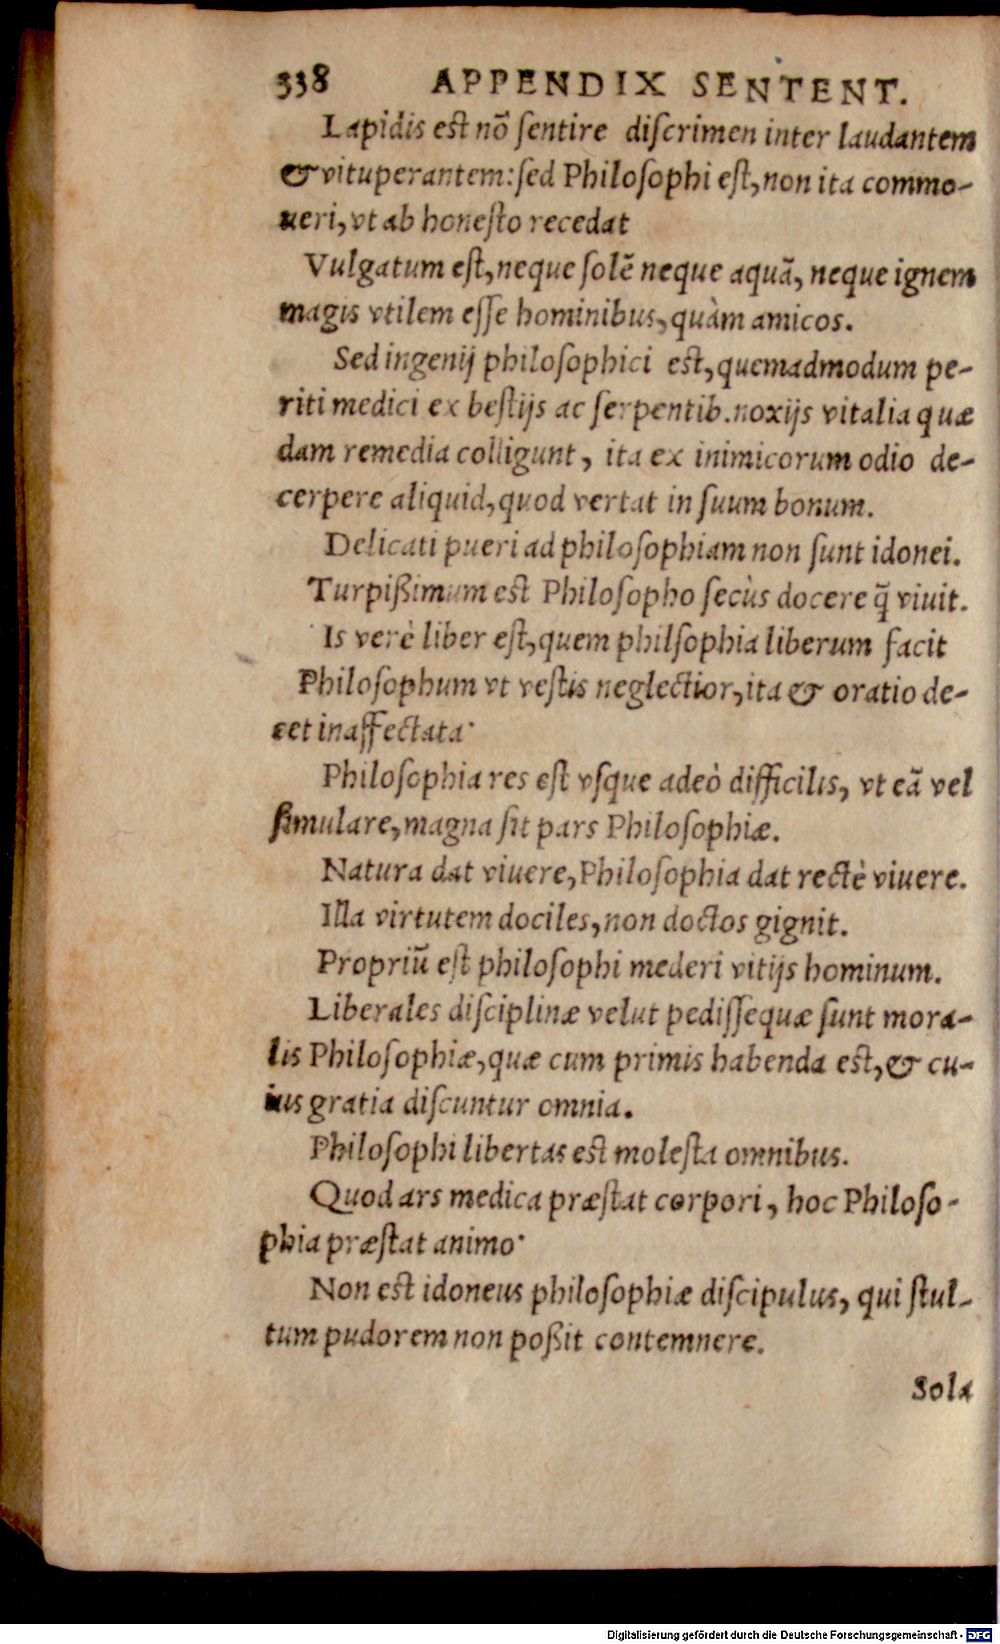 338 APPENDIX SENTENT.
Lapidis est nõ ſentire diſcrimen inter laudantem
& vituperantem: ſed Philoſophi eſt, non ita commo-
ueri, vt ab honeſto recedat
Vulgatum eſt, neque ſolẽ neque aquã, neque ignem
magis vtilem eſſe hominibus, quàm amicos.
Sed ingenij philoſophici est, quemadmodum pe-
riti medici ex beſtijs ac ſerpentib. noxijs vitalia quæ
dam remedia colligunt, ita ex inimicorum odio de-
cerpere aliquid, quod vertat in ſuum bonum.
Delicati pueri ad philoſophiam non ſunt idonei.
Turpißimum est Philoſopho ſecùs docere q̃ viuit.
Is verè liber eſt, quem philſophia liberum facit
Philoſophum vt veſtis neglectior, ita & oratio de-
cet inaffectata·
Philoſophia res eſt vſque adeò difficilis, vt eã vel
ſimulare, magna ſit pars Philoſophiæ.
Natura dat viuere, Philoſophia dat rectè viuere.
Illa virtutem dociles, non doctos gignit.
Propriũ eſt philoſophi mederi vitijs hominum.
Liberales diſciplinæ velut pediſſequæ ſunt mora-
lis Philoſophiæ, quæ cum primis habenda eſt, & cu-
ius gratia diſcuntur omnia.
Philoſophi libertas est moleſta omnibus.
Quod ars medica præſtat corpori, hoc Philoſo-
phia præſtat animo·
Non est idoneus philoſophiæ diſcipulus, qui ſtul-
tum pudorem non poßit contemnere.
Sola
Digitalisierung gefördert durch die Deutsche Forschungsgemeinschaft - DFG